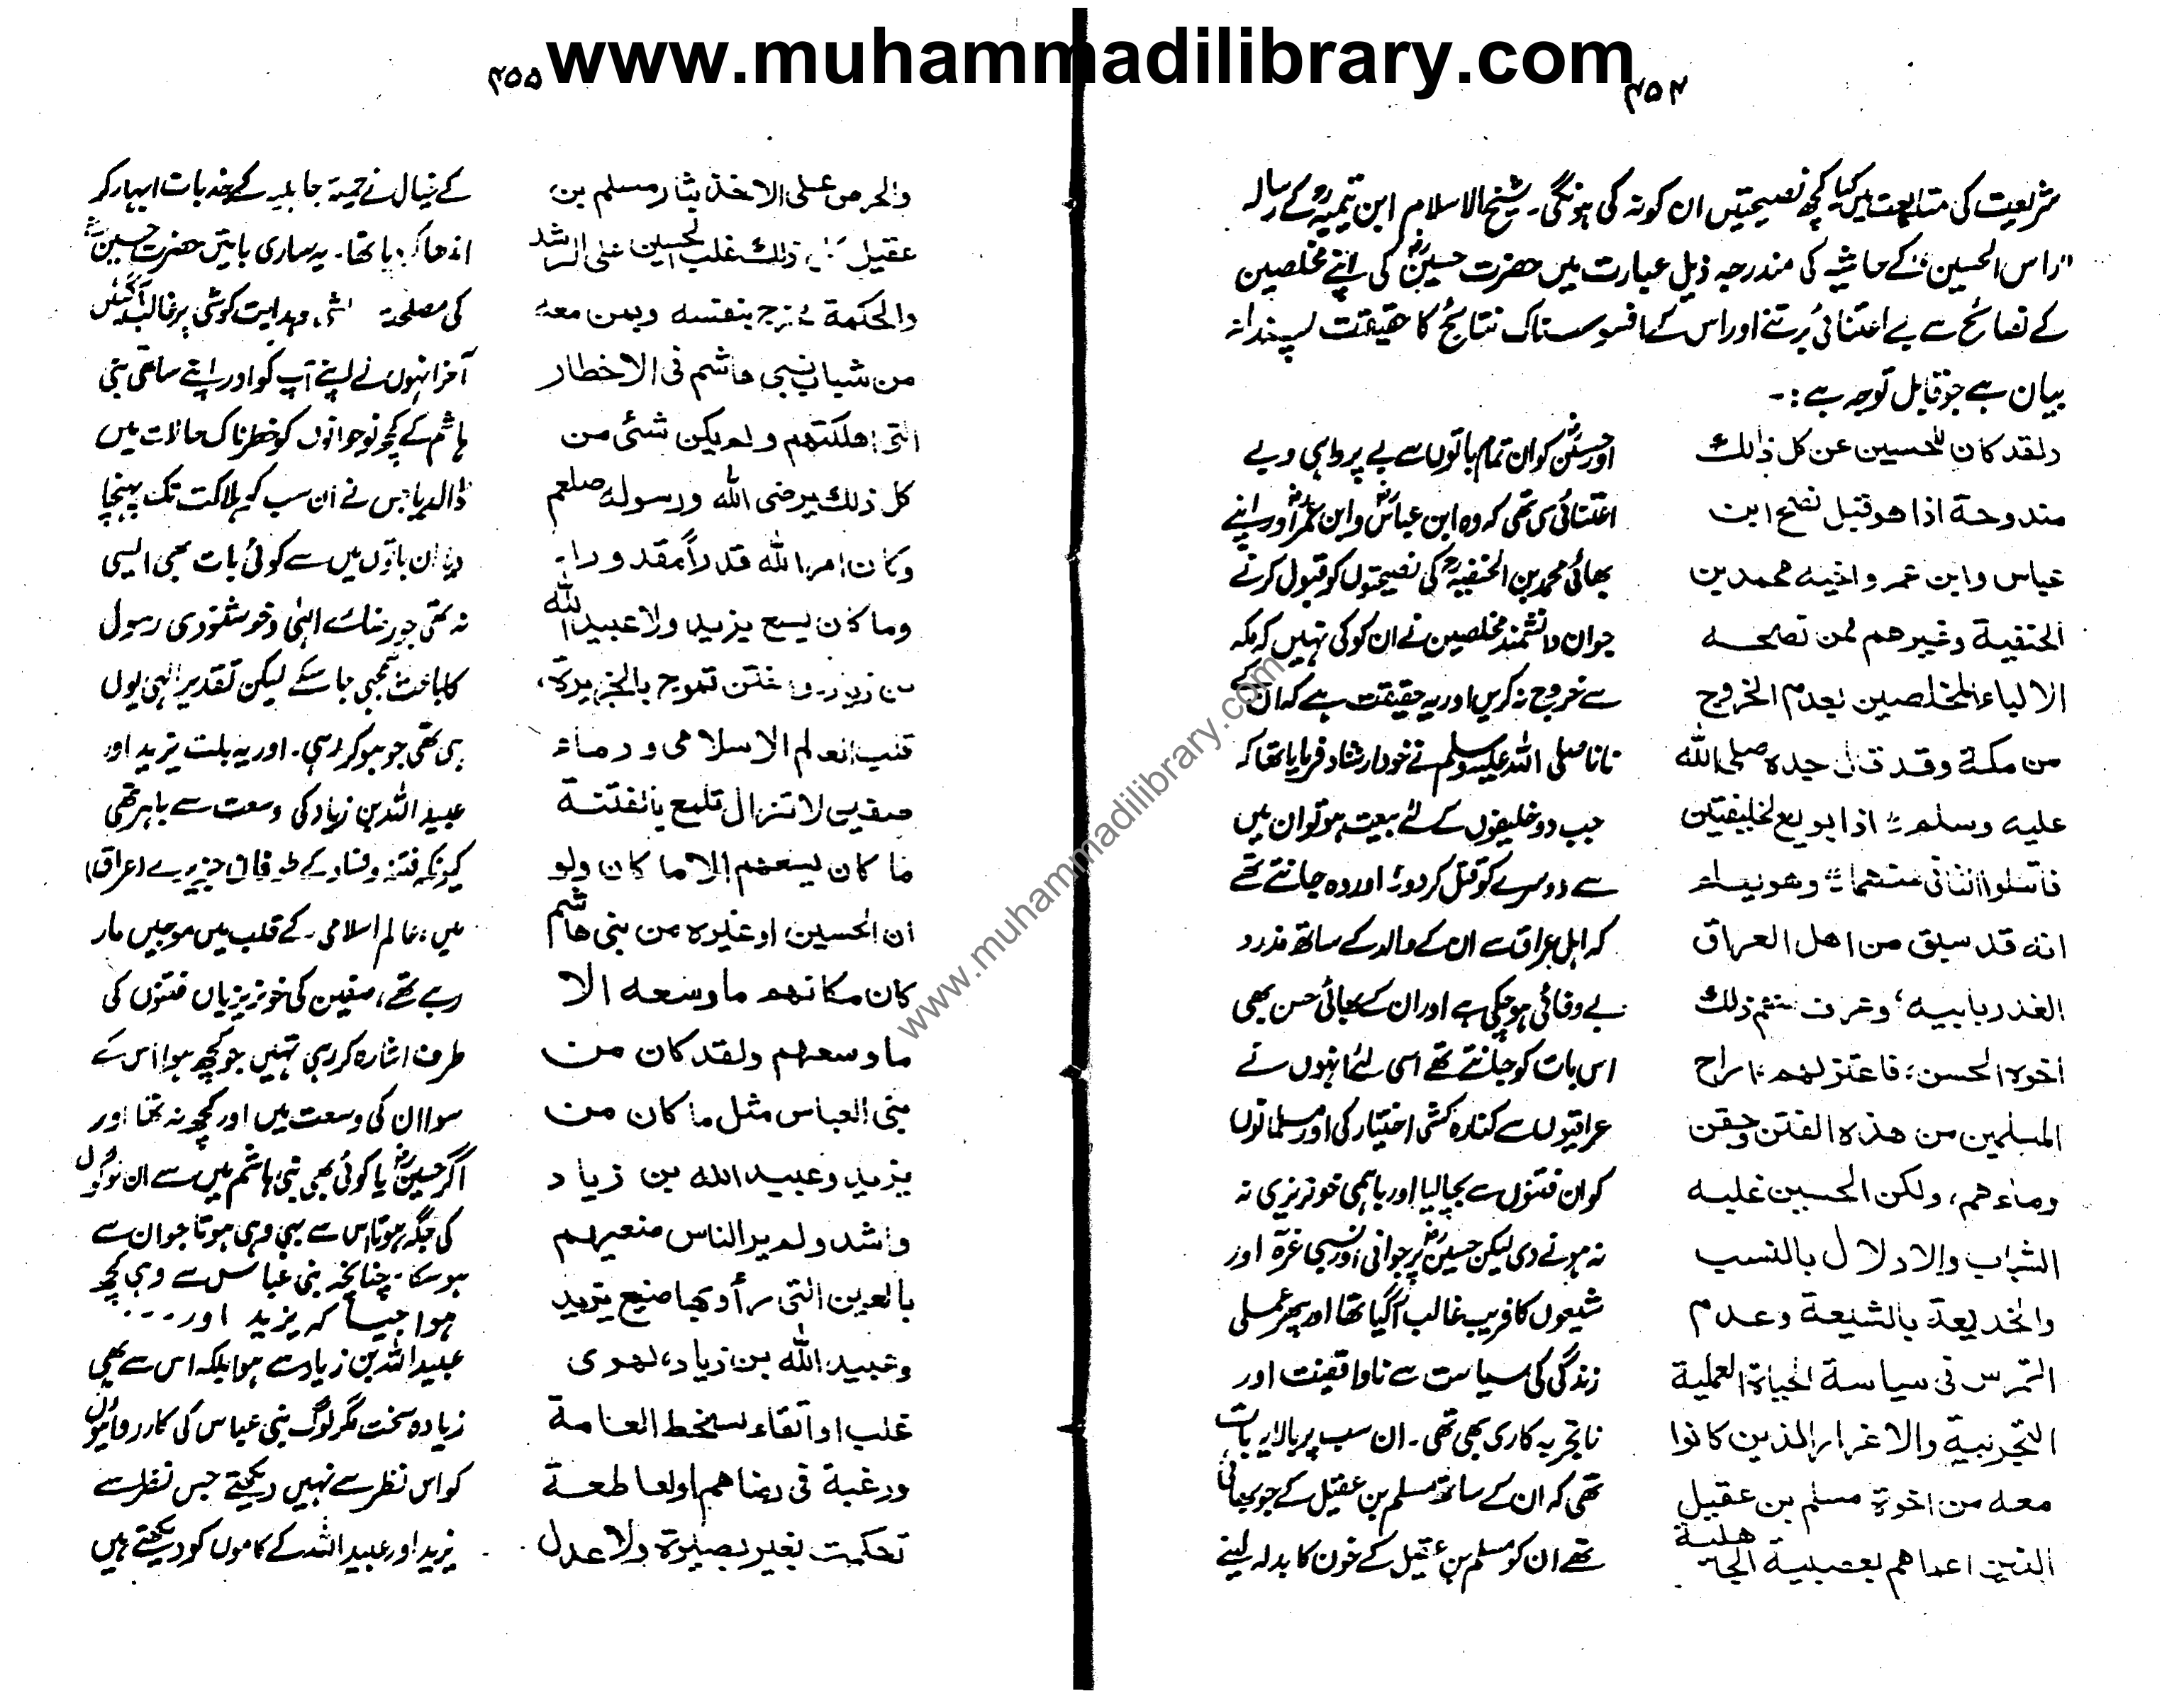 www.muhammadilibrary.com
۴۵۴
شریعت کی متابعت میں کیا کچھ نصیحتیں ان کو نہ کی ہونگی۔ شیخ الاسلام ابن تیمیہؒ کے رسالہ
"راس الحسین" کے حاشیہ کی مندرجہ ذیل عبارت میں حضرت حسینؓ کی اپنے مخلصین
کے نصائح سے بے اعتنائی برتنے اور اس کے افسوسناک نتائج کا حقیقت پسندانہ
بیان ہے جو قابل توجہ ہے :-
ولقد كان للحسين عن كل ذلك
مندوحة اذا هو قبل نصح ابن
عباس وابن عمر واخيه محمد بن
الحنفية وغيرهم ممن نصحه
الالباء المخلصين بعدم الخروج
من مكة وقد قال جده صلى الله
عليه وسلم "اذا بويع لخليفتين
فاقتلوا الثانى منهما" وهو يعلم
انه قد سبق من اهل العراق
الغدر بابيه، وعرف منهم ذلك
اخوه الحسن، فاعتزلهم، اراح
المسلمين من هذه الفتن وحقن
دماءهم، ولكن الحسين غلبه
الشباب والادلال بالنسب
والخديعة بالشيعة وعدم
التمرس فى سياسة الحياة العملية
التجريبية والاغرار الذين كانوا
معه من اخوة مسلم بن عقيل
الذين اعماهم بعصبية الجاهلية
اور حسینؓ کو ان تمام باتوں سے بے پرواہی و بے
اعتنائی سی تھی کہ وہ ابن عباسؓ و ابن عمرؓ اور اپنے
بھائی محمد بن الحنفیہؒ کی نصیحتوں کو قبول کرتے
جو ان دانشمند مخلصین نے ان کو کی تہیں کہ مکہ
سے خروج نہ کریں اور یہ حقیقت ہے کہ ان کے
نانا صلی اللہ علیہ وسلم نے خود ارشاد فرمایا تھا کہ
جب دو خلیفوں کے لئے بیعت ہو تو ان میں
سے دوسرے کو قتل کر دو" اور وہ جانتے تھے
کہ اہل عراق سے ان کے والد کے ساتھ غدر و
بے وفائی ہو چکی ہے اور ان کے بھائی حسن بھی
اس بات کو جانتے تھے اسی لئے انہوں نے
عراقیوں سے کنارہ کشی اختیار کی اور مسلمانوں
کو ان فتنوں سے بچا لیا اور باہمی خونریزی نہ
نہ ہونے دی لیکن حسینؓ پر جوانی اور نسبی غرّہ اور
شیعوں کا فریب غالب آگیا تھا اور پھر عملی
زندگی کی سیاست سے ناواقفیت اور
ناتجربہ کاری بھی تھی۔ ان سب پر بالا یہ بات
تھی کہ ان کے ساتھ مسلم بن عقیل کے جو بھائی
تھے ان کو مسلم بن عقیل کے خون کا بدلہ لینے
۴۵۵
والحرص على الاخذ بثار مسلم بن
عقيل كل ذلك غلب الحسين على الرشد
والحكمة فخرج بنفسه وبمن معه
من شباب بنى هاشم فى الاخطار
التى اهلكتهم ولم يكن شئى من
كل ذلك يرضى الله ورسوله صلعم
وكان امر الله قدراً مقدورا،
وما كان يسع يزيد ولا عبيد الله
بن زياد والفتن تموج بالجزيرة،
قلب العالم الاسلامى ودماء
صفين لا تزال تلمع بالفتنة
ما كان يسعهم الا ما كان ولو
ان الحسين او غيره من بنى هاشم
كان مكانهم ما وسعه الا
ما وسعهم ولقد كان من
بنى العباس مثل ما كان من
يزيد وعبيد الله بن زياد
واشد ولم ير الناس صنعيهم
بالعين التى رأوا بها صنيع يزيد
وعبيد الله بن زياد، لهوى
غلب او اتقاء لسخط العامة
ورغبة فى رضاهم او لعاطفة
تحكمت بغير بصيرة ولا عدل
کے خیال نے حمیۃ جاہلیہ کے جذبات ابہار کر
اندھا کر دیا تھا۔ یہ ساری باتیں حضرت حسینؓ
کی مصلحت و ہدایت کوشی پر غالب آگئیں
آخر انہوں نے اپنے آپ کو اور اپنے ساتھی بنی
ہاشم کے کچھ نوجوانوں کو خطرناک حالات میں
ڈالدیا جس نے ان سب کو ہلاکت تک پہنچا
دیا ان باتوں میں سے کوئی بات بھی ایسی
نہ تھی جو رضائے الٰہی و خوشنودی رسول
کا باعث سمجھی جا سکے لیکن تقدیر الٰہی یوں
ہی تھی جو ہو کر رہی۔ اور یہ بات یزید اور
عبید اللہ بن زیاد کی وسعت سے باہر تھی
کیونکہ فتنہ و فساد کے طوفان جزیرے (عراق)
میں، عالم اسلامی کے قلب میں موجیں مار
رہے تھے، صفین کی خونریزیاں فتنوں کی
طرف اشارہ کر رہی تہیں جو کچھ ہوا اس کے
سوا ان کی وسعت میں اور کچھ نہ تھا اور
اگر حسینؓ یا کوئی بھی بنی ہاشم میں سے ان لوگوں
کی جگہ ہوتا اس سے بھی وہی ہوتا جو ان سے
ہو سکا۔ چنانچہ بنی عباس سے وہی کچھ
ہوا جیسا کہ یزید اور ....
عبید اللہ بن زیاد سے ہوا بلکہ اس سے بھی
زیادہ سخت مگر لوگ بنی عباس کی کارروائیوں
کو اس نظر سے نہیں دیکھتے جس نظر سے
یزید اور عبید اللہ کے کاموں کو دیکھتے ہیں
www.muhammadilibrary.com